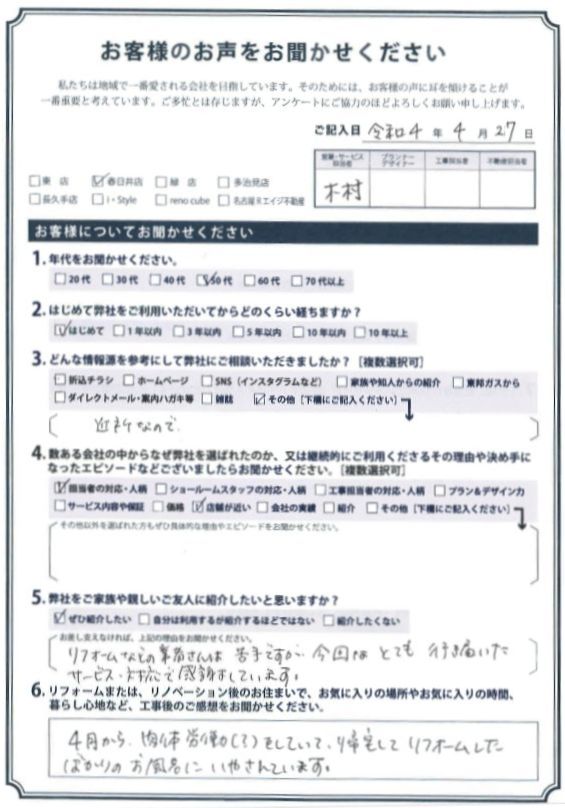 お客様のお声をお聞かせください
私たちは地域で一番愛される会社を目指しています。そのためには、お客様の声に耳を傾けることが
一番重要と考えています。ご多忙とは存じますが、アンケートにご協力のほどよろしくお願い申し上げます。
ご記入日 令和4 年 4 月 27 日
営業・サービス担当者 プランナーデザイナー 工事担当者 不動産担当者
木村
□東 店 ☑春日井店 □緑 店 □多治見店
□長久手店 □i・Style □reno cube □名古屋Rエイジ不動産
お客様についてお聞かせください
1. 年代をお聞かせください。
□20代 □30代 □40代 ☑50代 □60代 □70代以上
2. はじめて弊社をご利用いただいてからどのくらい経ちますか？
☑はじめて □1年以内 □3年以内 □5年以内 □10年以内 □10年以上
3. どんな情報源を参考にして弊社にご相談いただきましたか？［複数選択可］
□折込チラシ □ホームページ □SNS（インスタグラムなど） □家族や知人からの紹介 □東邦ガスから
□ダイレクトメール・案内ハガキ等 □雑誌 ☑その他［下欄にご記入ください］
近所なので
4. 数ある会社の中からなぜ弊社を選ばれたのか、又は継続的にご利用くださるその理由や決め手に
なったエピソードなどございましたらお聞かせください。［複数選択可］
☑担当者の対応・人柄 □ショールームスタッフの対応・人柄 □工事担当者の対応・人柄 □プラン&デザイン力
□サービス内容や保証 □価格 ☑店舗が近い □会社の実績 □紹介 □その他［下欄にご記入ください］
その他以外を選ばれた方もぜひ具体的な理由やエピソードをお聞かせください。
5. 弊社をご家族や親しいご友人に紹介したいと思いますか？
☑ぜひ紹介したい □自分は利用するが紹介するほどではない □紹介したくない
お差し支えなければ、上記の理由をお聞かせください。
リフォームなどの業者さんは 苦手ですが、今回は とても 行き届いた
サービス・対応で感謝しています。
6. リフォームまたは、リノベーション後のお住まいで、お気に入りの場所やお気に入りの時間、
暮らし心地など、工事後のご感想をお聞かせください。
4月から、肉体労働(?)をしていて、帰宅して リフォームした
ばかりの お風呂に いやされています。